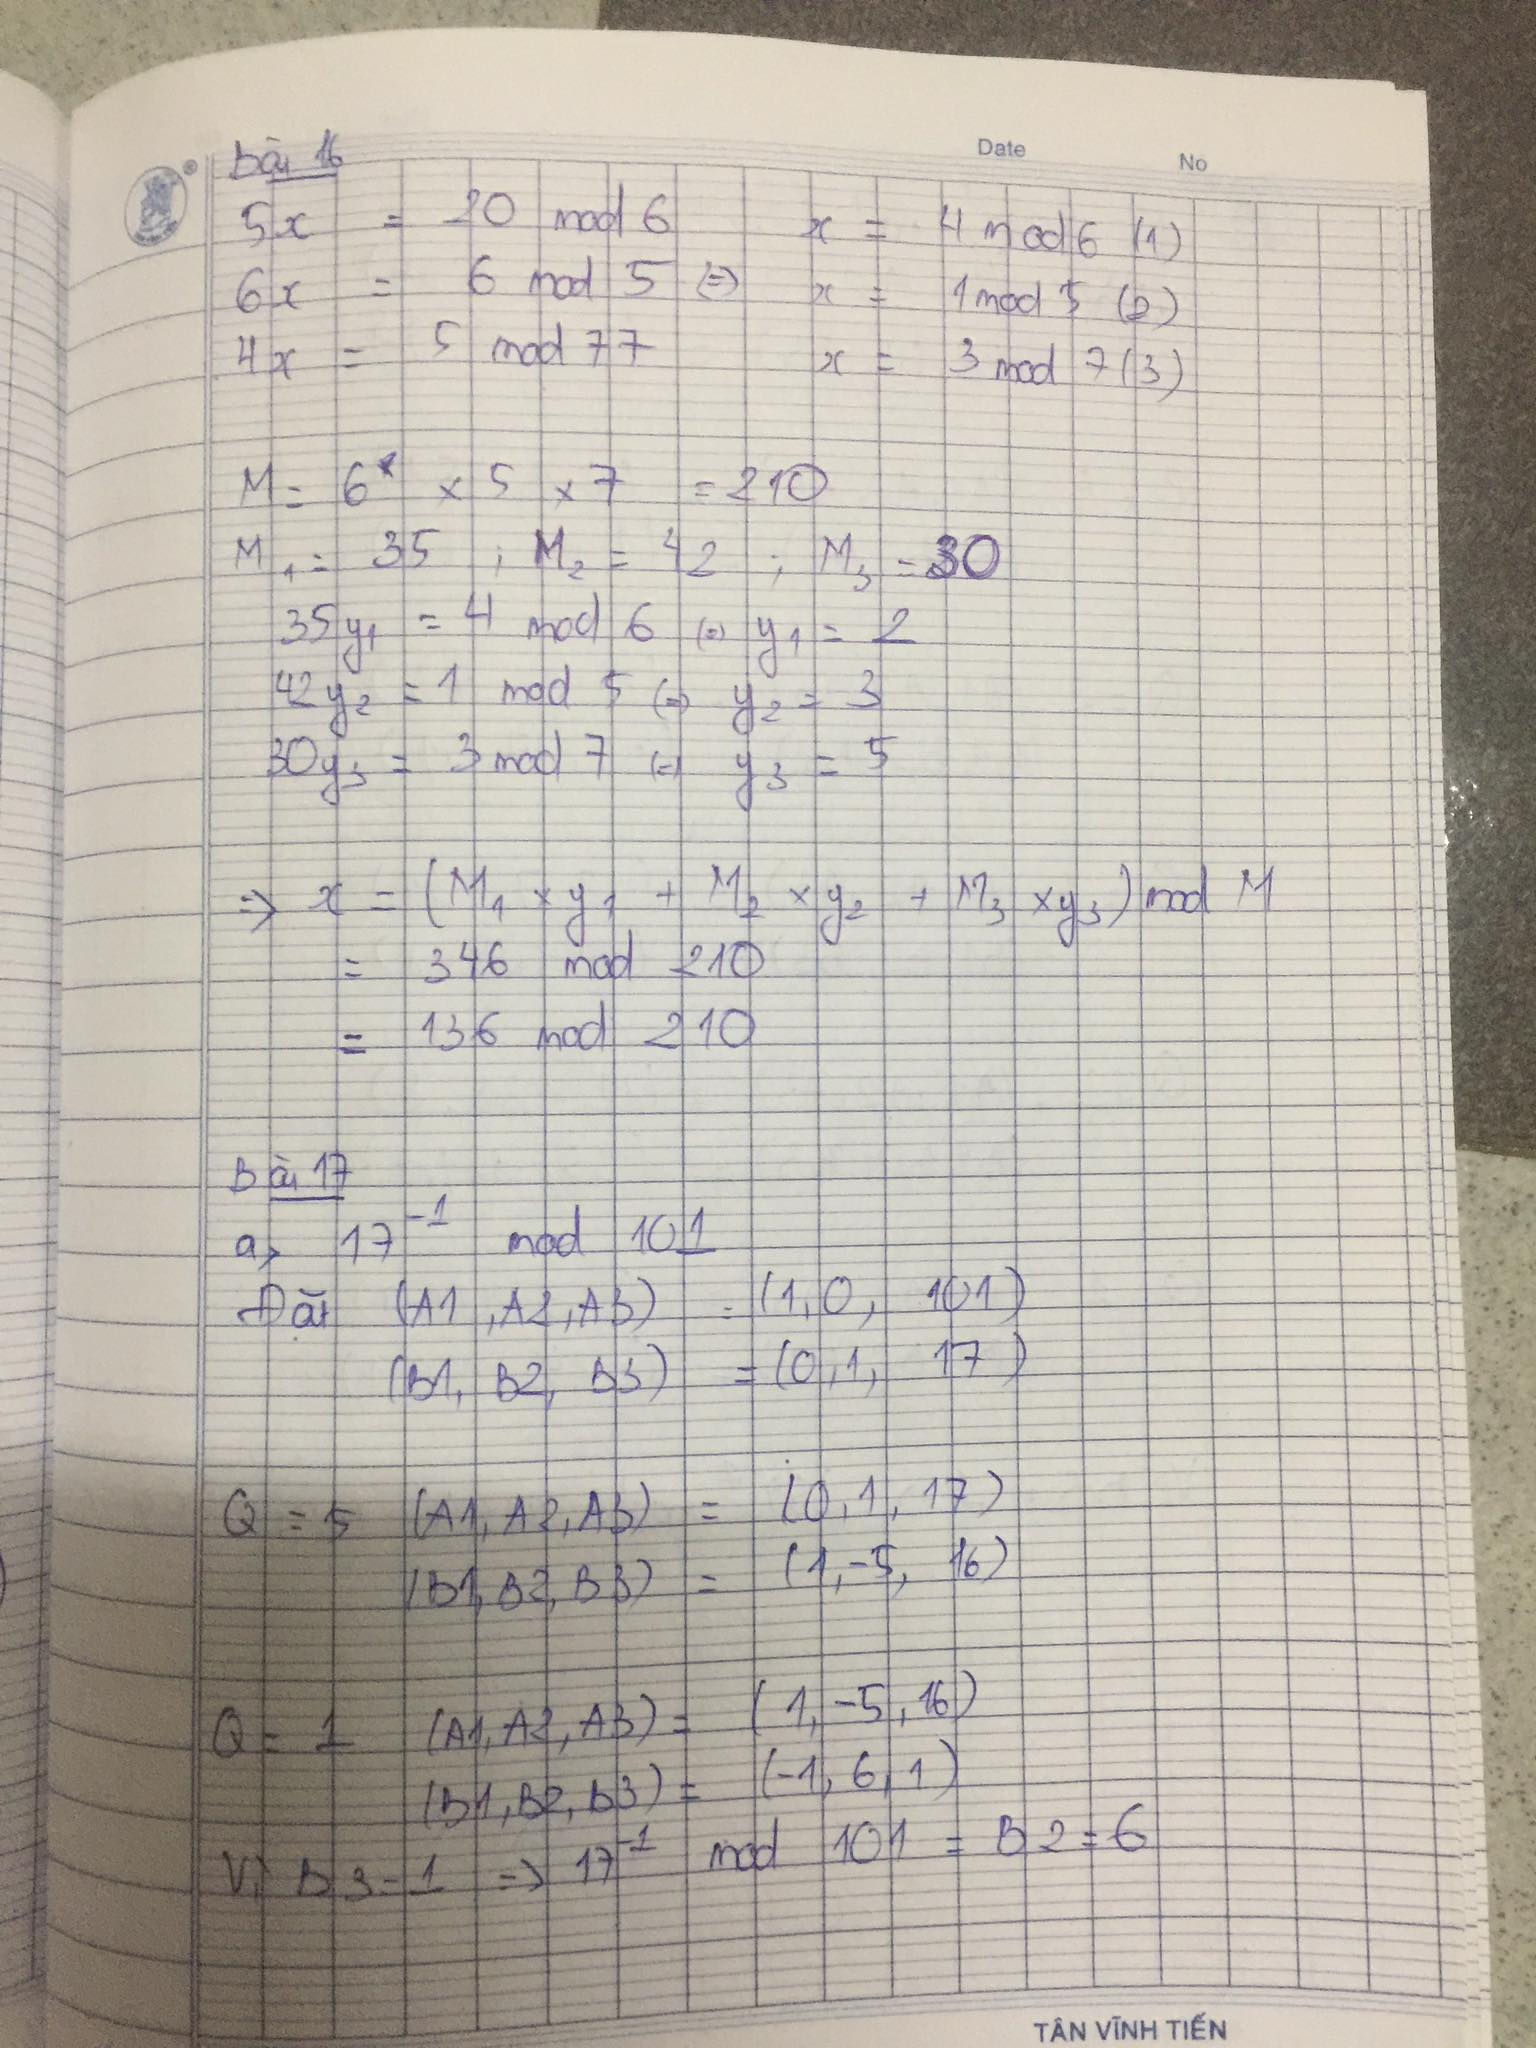 Date No
Bài 16
5x = 20 mod 6 x = 4 mod 6 (1)
6x = 6 mod 5 (=) x = 1 mod 5 (2)
4x = 5 mod 77 x = 3 mod 7 (3)
M = 6 × 5 × 7 = 210
M1 = 35 ; M2 = 42 ; M3 = 30
35y1 = 4 mod 6 (=) y1 = 2
42y2 = 1 mod 5 (=) y2 = 3
30y3 = 3 mod 7 (=) y3 = 5
=> x = (M1 × y1 + M2 × y2 + M3 × y3) mod M
= 346 mod 210
= 136 mod 210
Bài 17
a, 17^-1 mod 101
Đặt (A1, A2, A3) = (1, 0, 101)
(B1, B2, B3) = (0, 1, 17)
Q = 5 (A1, A2, A3) = (0, 1, 17)
(B1, B2, B3) = (1, -5, 16)
Q = 1 (A1, A2, A3) = (1, -5, 16)
(B1, B2, B3) = (-1, 6, 1)
Vì B3 = 1 => 17^-1 mod 101 = B2 = 6
TÂN VĨNH TIẾN